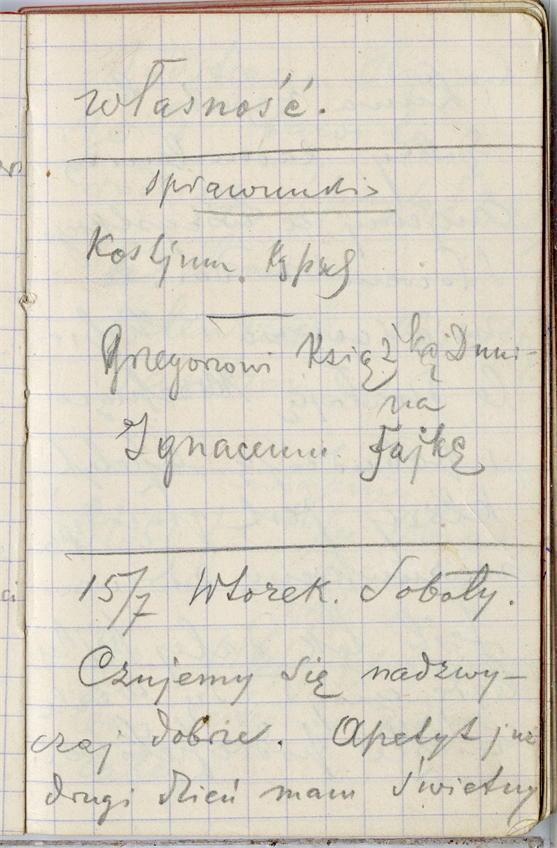 własność.
sprawunki
Kostjum.
Grzegorzowi Książkę Duni-
na
Ignacemu. Fajkę
15/7 Wtorek. Soboty.
Czujemy się nadzwy-
czaj dobrze. Apetyt już
drugi dzień mam świetny